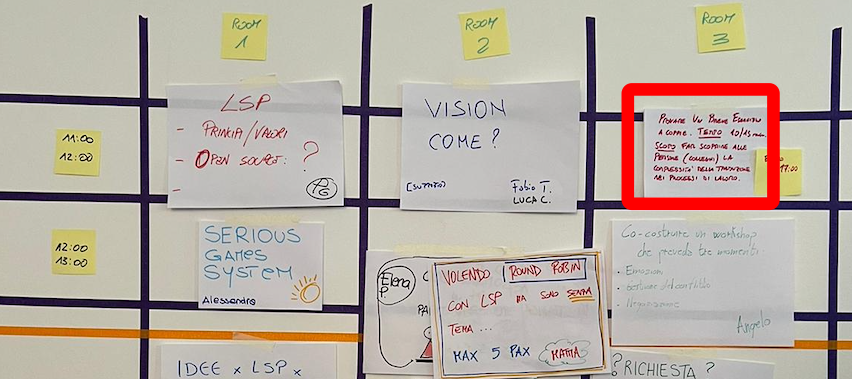 ROOM
1
ROOM
2
ROOM
3
11:00
12:00
LSP
- PRINCIPI/VALORI
- OPEN SOURCE: ?
-
PG
VISION
COME?
Fabio T.
LUCA C.
PROVARE UN BREVE ESERCIZIO
A COPPIE. TEMPO 10/15 min.
SCOPO FAR SCOPRIRE ALLE
PERSONE (COLLEGHI) LA
COMPLESSITÀ DELLA
NEI PROCESSI DI LAVORO.
17:00
12:00
13:00
SERIOUS
GAMES
SYSTEM
Alessandro
Elena
P.
VOLENDO ROUND ROBIN
CON LSP MA SONO SENZA
TEMA ...
MAX 5 PAX MATTIA
Co-costruire un workshop
che preveda tre momenti
- Emozioni
- Gestione del conflitto
- Negoziazione
Angelo
IDEE x LSP x
? RICHIESTA ?